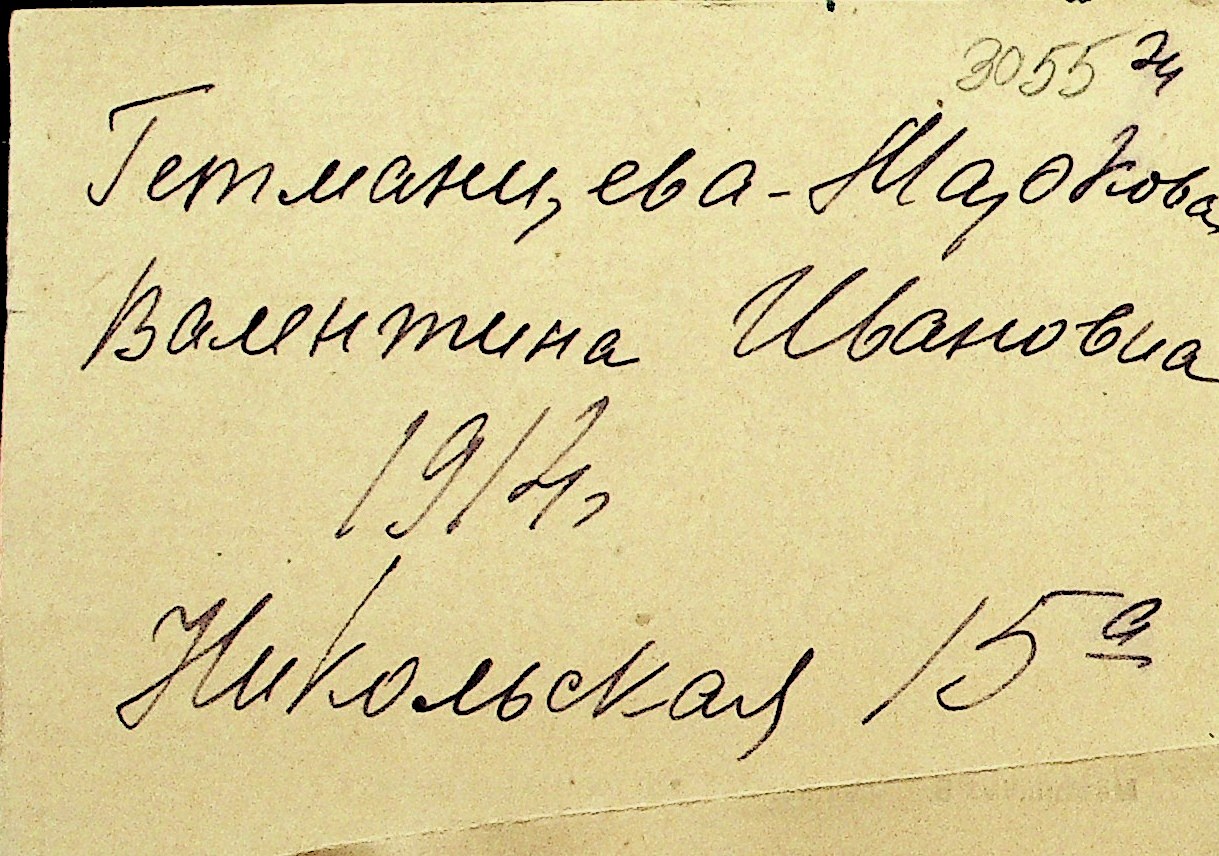 3055 эч
Гетманцева-Жаркова
Валентина Ивановна
1914г
Никольская 15а